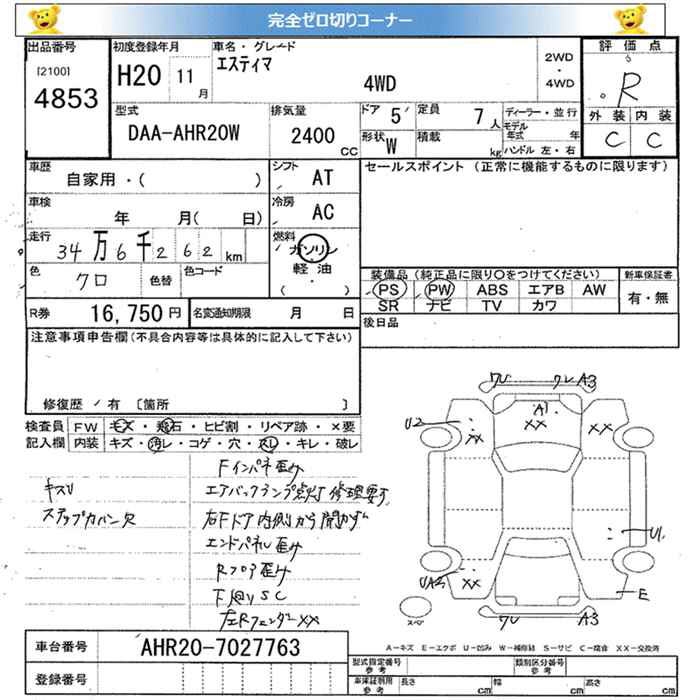 完全ゼロ切りコーナー
出品番号
[2100]
4853
初度登録年月
H20 11月
車名・グレード
エスティマ
4WD
2WD
・
4WD
評価点
R
外装 内装
C C
型式
DAA-AHR20W
排気量
2400
CC
ドア 5
定員 7人
形状 W
積載 kg
ディーラー・並行
モデル
年式 年
ハンドル 左・右
車歴
自家用・( )
シフト
AT
車検
年 月( 日)
冷房
AC
走行
34万6千262km
燃料
ガソリン
・
軽油
( ・ )
色
クロ
色替
色コード
R券
16,750円
名変通知期限
月 日
セールスポイント (正常に機能するものに限ります)
装備品(純正品に限り○をつけてください)
PS PW ABS エアB AW
SR ナビ TV カワ
新車保証書
有・無
後日品
注意事項申告欄(不具合内容等は具体的に記入して下さい)
修復歴 / 有 [箇所 ]
検査員
記入欄
FW キズ・飛石・ヒビ割・リペア跡・×要
内装 キズ・汚レ・コゲ・穴・スレ・キレ・破レ
キスU
ステップカバー欠
Fインパネ歪み
エアバックランプ点灯 修理要す
右Fドア内側から開かず
エンドパネル歪み
Rフロア歪み
左RフェンダーXX
ワU
クレA3
A1
XX
U2
XX
XX
U1
UA2
XX
E
ワU
A3
スペア
A−キズ E−エクボ U−凹み W−補修跡 S−サビ C−腐食 XX−交換済
車台番号
AHR20-7027763
登録番号
型式指定番号
参考
類別区分番号
参考
車庫証明用
参考
長さ cm
幅 cm
高さ cm